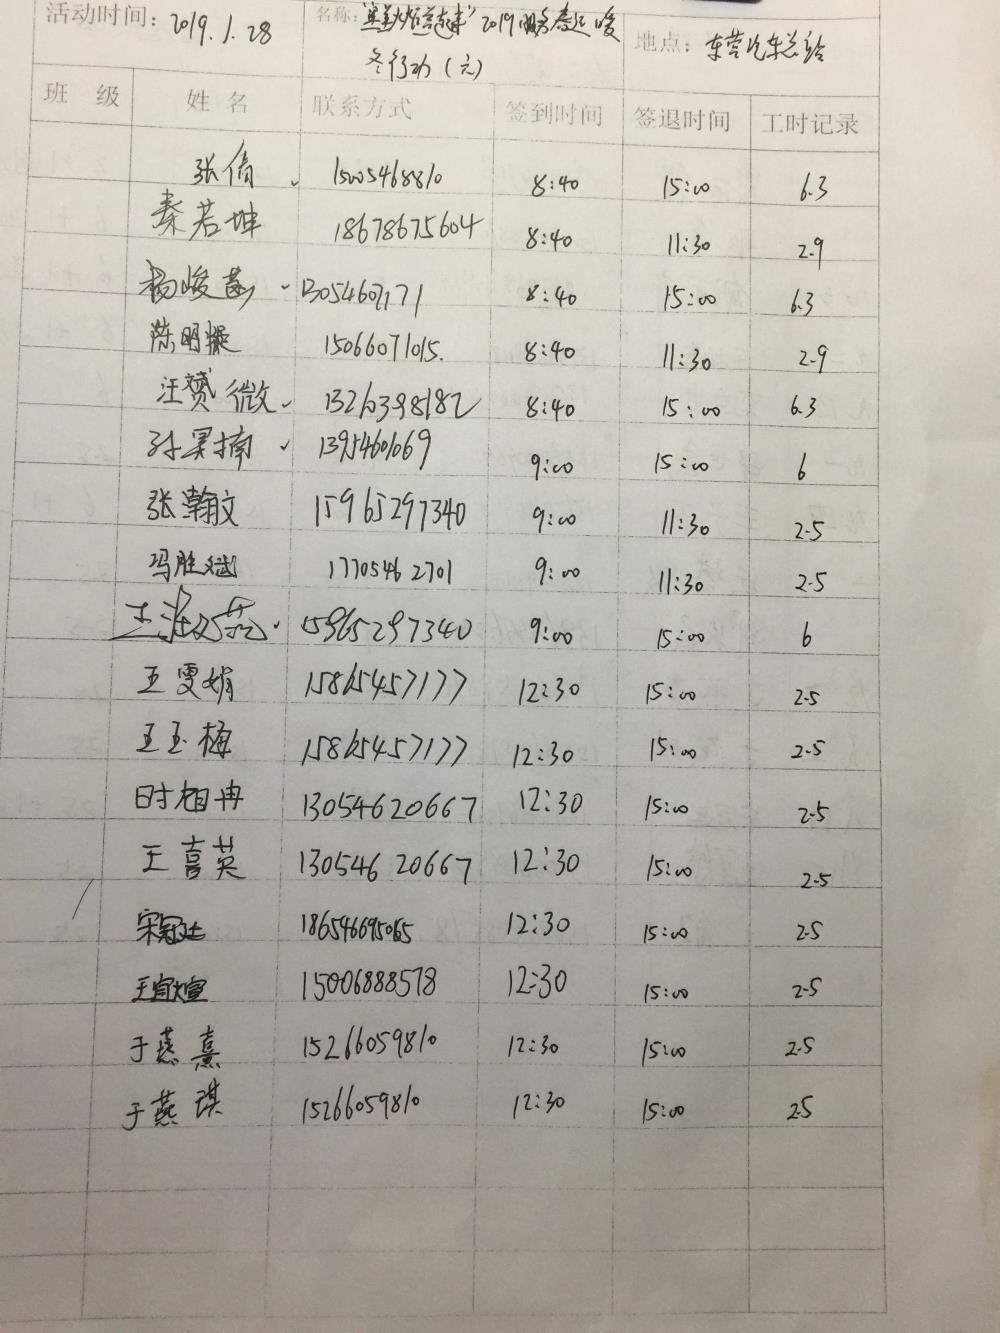 活动时间: 2019.1.28 名称: 2019服务春运暖 地点: 东营汽车总站
冬行动(六)
班 级 姓 名 联系方式 签到时间 签退时间 工时记录
张倩 15005468810 8:40 15:00 6.3
秦若坤 18678675604 8:40 11:30 2.9
杨峻 8:40 15:00 6.3
陈明 15066071015. 8:40 11:30 2.9
汪赟微 1326398182 8:40 15:00 6.3
孙昊楠 13954601069 9:00 15:00 6
张瀚文 15965297340 9:00 11:30 2.5
冯胜斌 17705462701 9:00 11:30 2.5
王 15965297340 9:00 15:00 6
王雯娟 15865457177 12:30 15:00 2.5
王玉梅 15865457177 12:30 15:00 2.5
时相冉 13054620667 12:30 15:00 2.5
王喜英 13054620667 12:30 15:00 2.5
宋冠廷 186546695065 12:30 15:00 2.5
王宥煊 15006888578 12:30 15:00 2.5
于燕熹 15266059810 12:30 15:00 2.5
于燕琪 15266059810 12:30 15:00 2.5